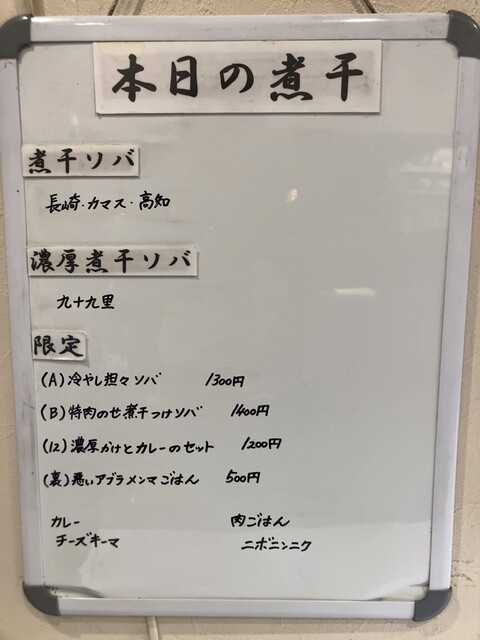 本日の煮干
煮干ソバ
長崎・カマス・高知
濃厚煮干ソバ
九十九里
限定
(A)冷やし担々ソバ 1300円
(B)特肉のせ煮干つけソバ 1400円
(12)濃厚かけとカレーのセット 1200円
(裏)悪いアブラメンマごはん 500円
カレー 肉ごはん
チーズキーマ ニボニンニク